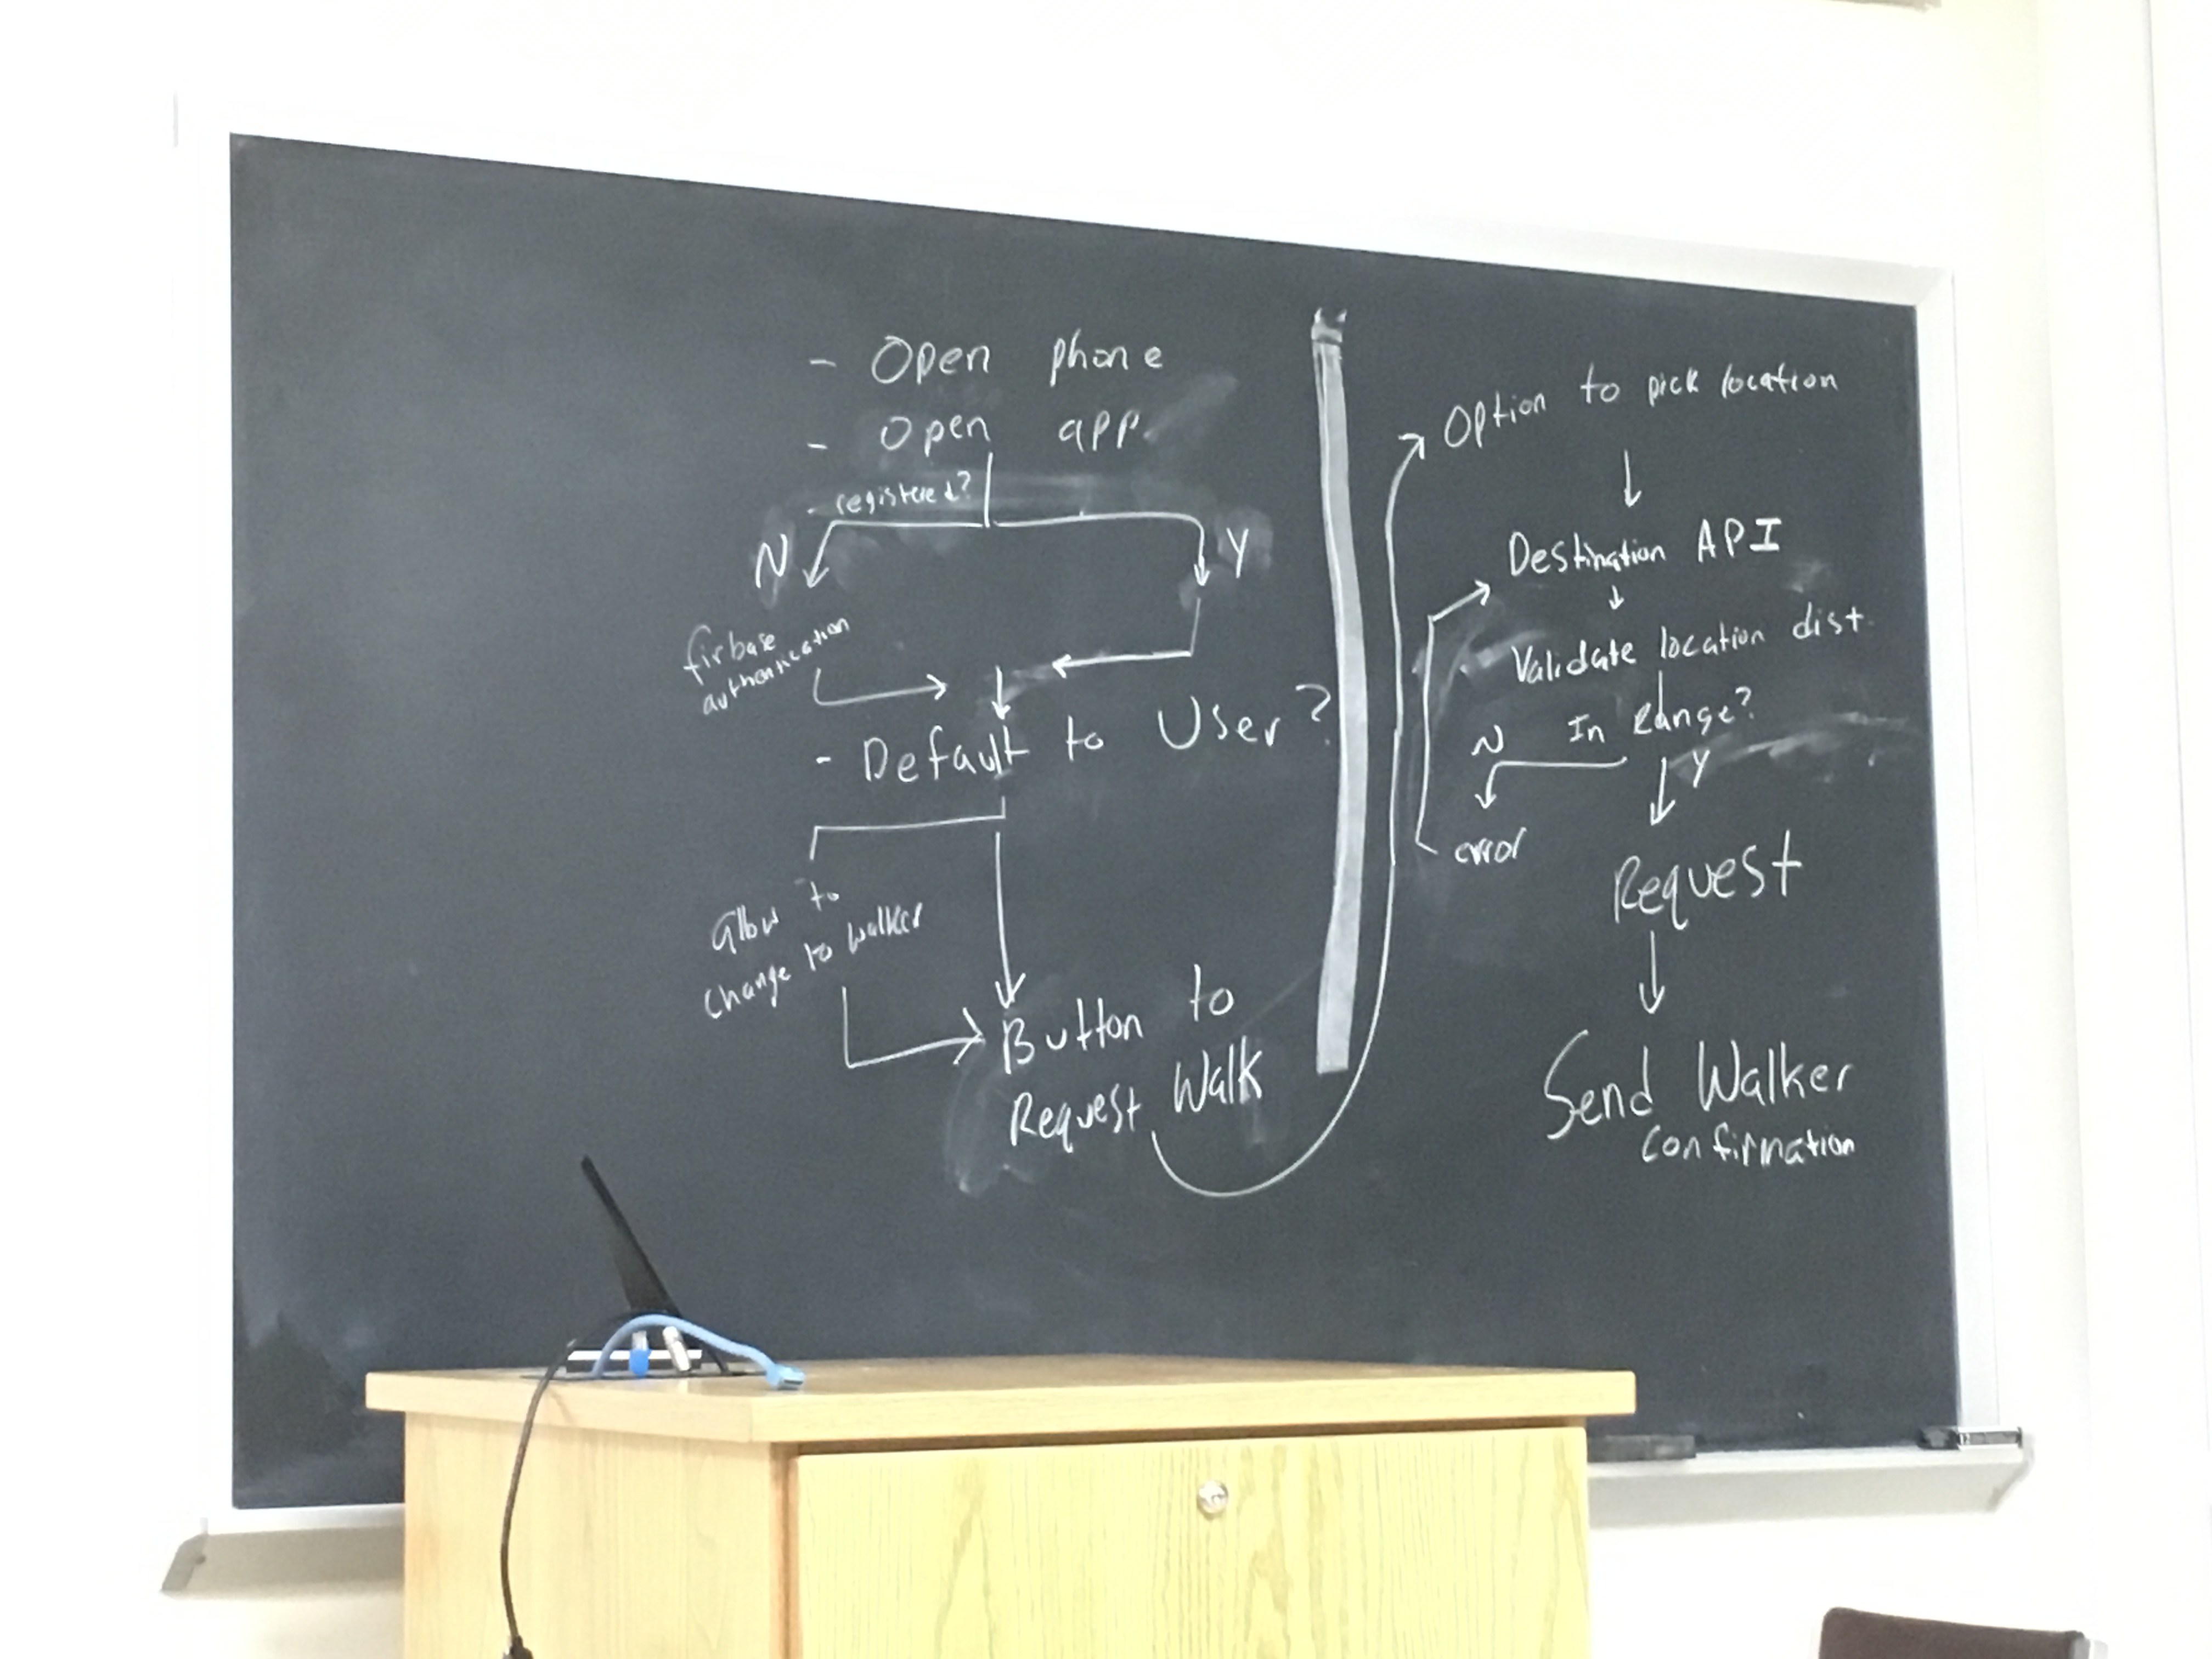 - Open phone
- Open app
- registered?
N
Y
firbase
authentication
- Default to User?
allow to
change to walker
Button to
Request Walk
Option to pick location
Destination API
Validate location dist.
In Range?
N
Y
error
Request
Send Walker
confirmation